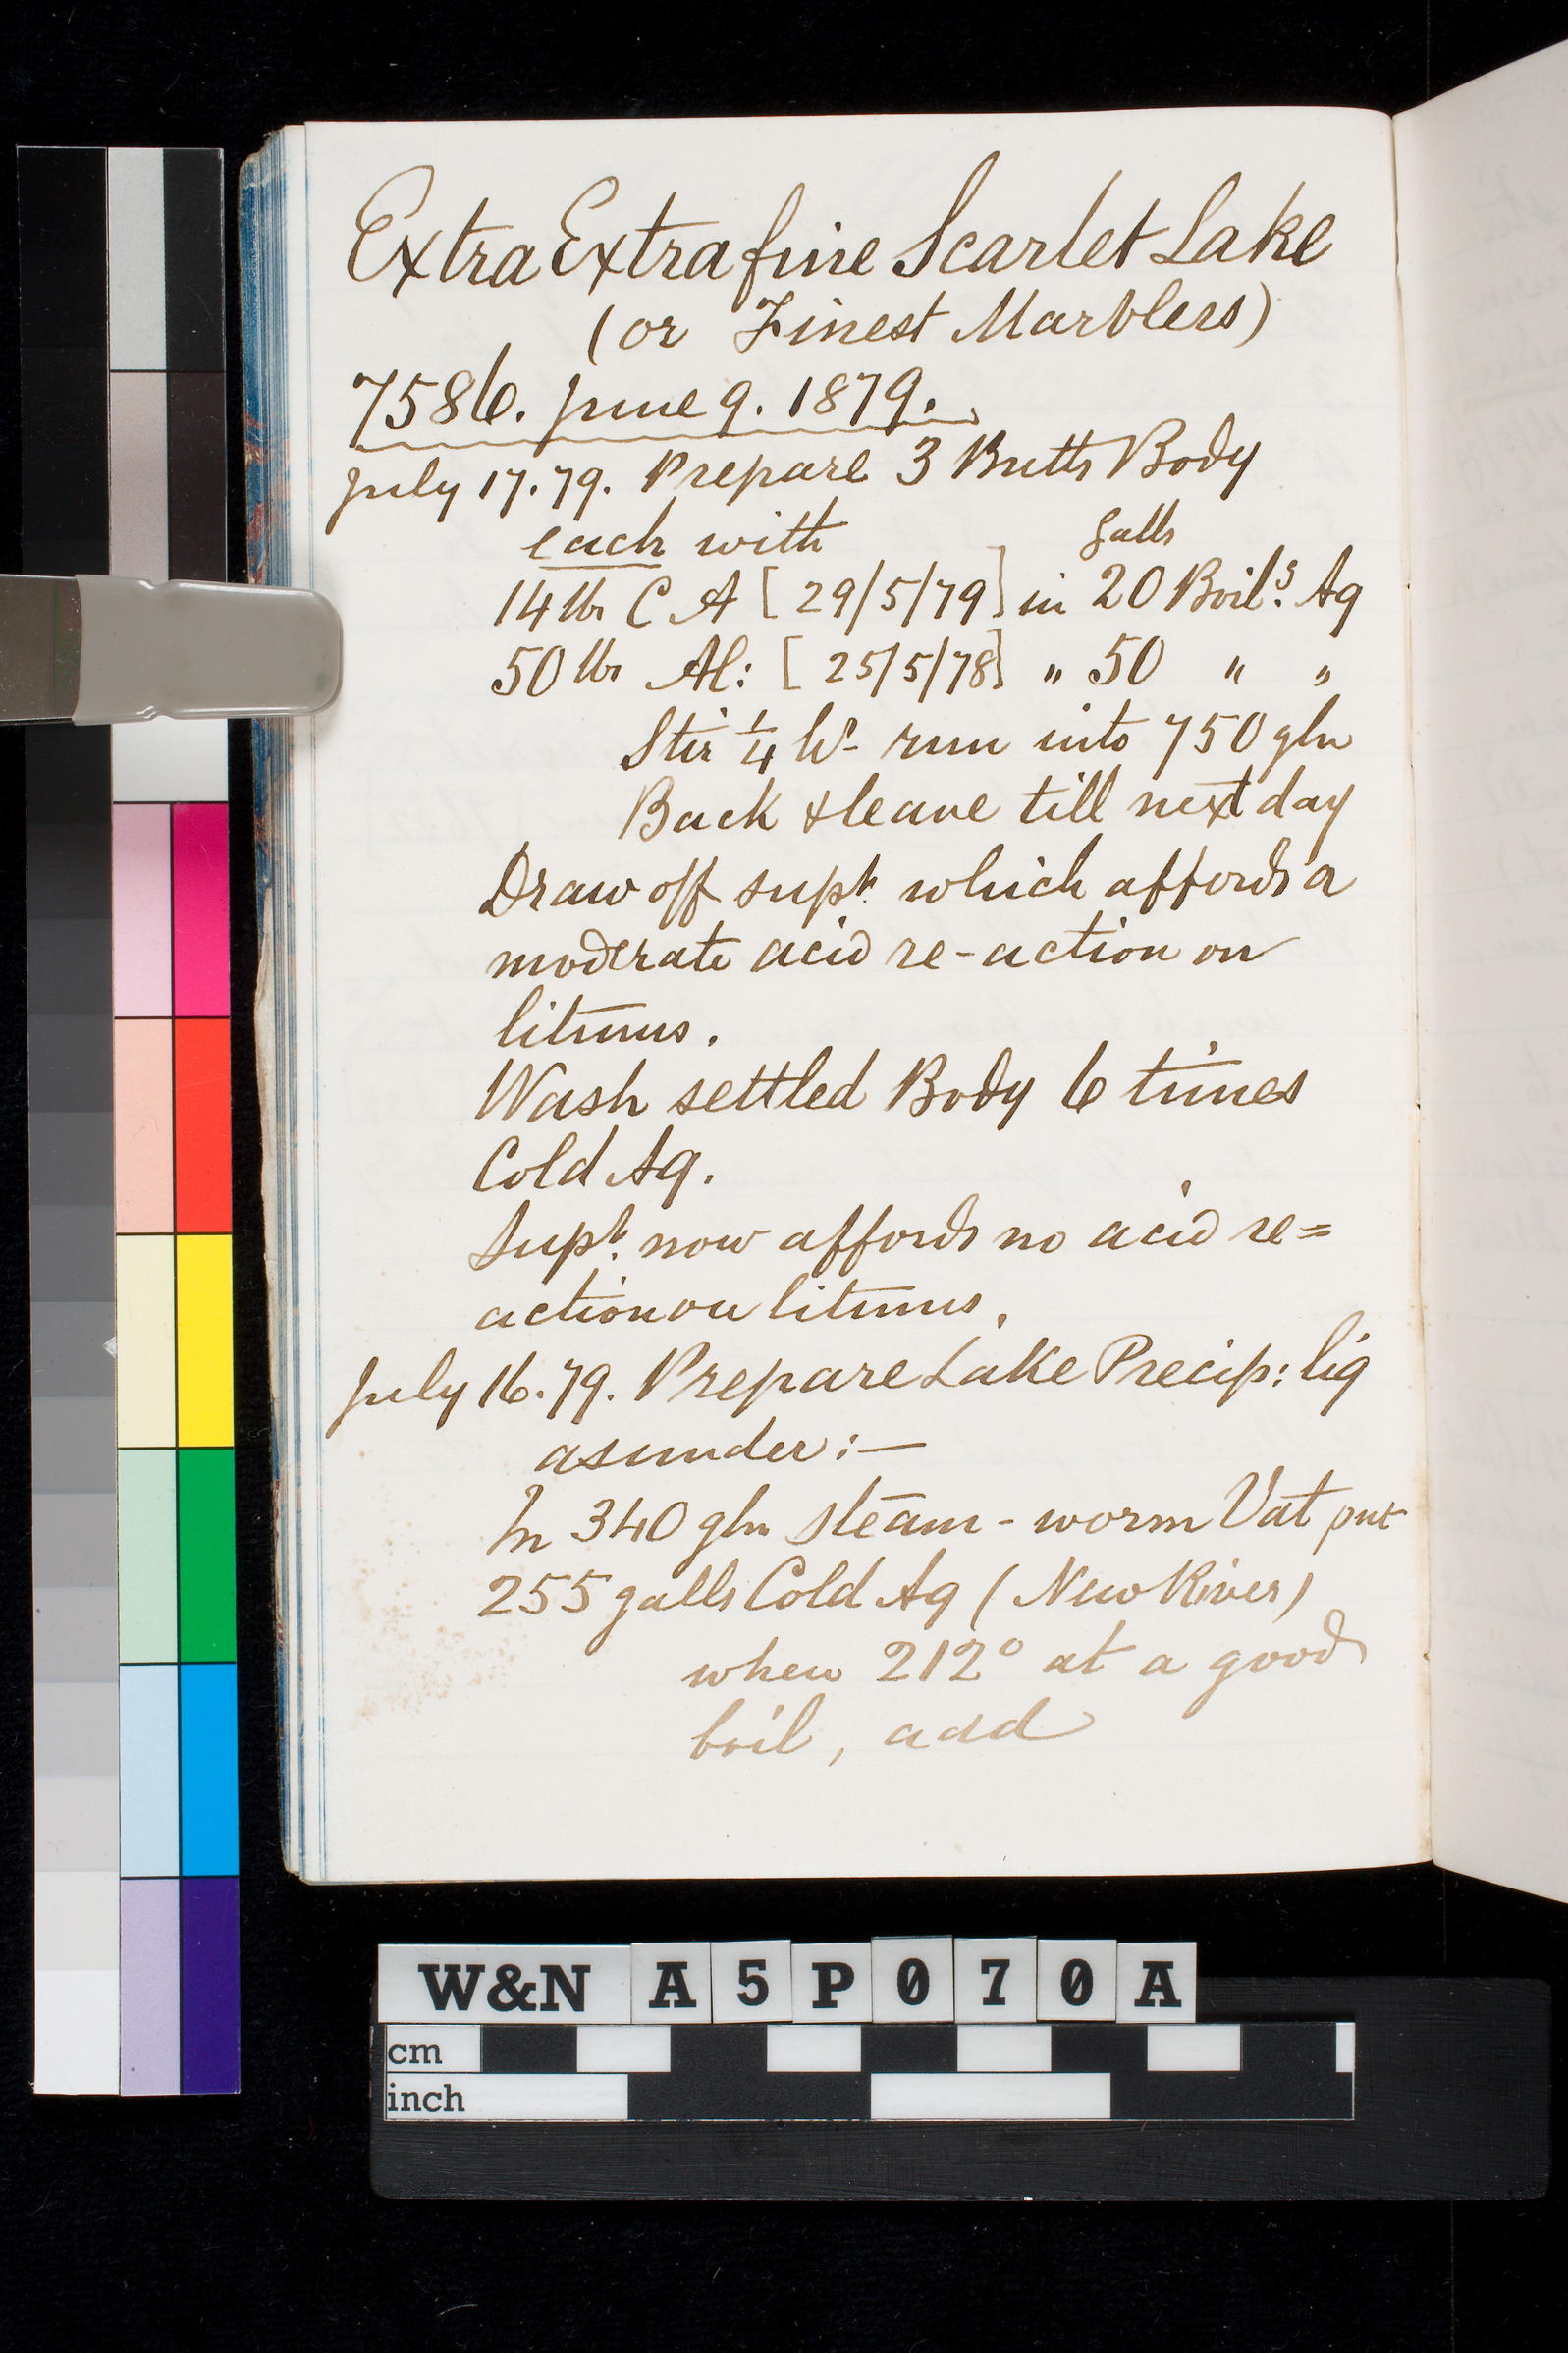 Extra Extra fine Scarlet Lake
(or Finest Marblers)
7586. June 9. 1879.
July 17.79. Prepare 3 Butts Body
each with galls
14 lbs C A [29/5/79] in 20 Boilg. Aq
50 lbs Al: [25/5/78] " 50 " "
Stir 1/4 hr run into 750 gln
Back & leave till next day
Draw off supt. which affords a
moderate acid re-action on
litmus.
Wash settled Body 6 times
Cold Aq.
Supt. now affords no acid re=
action on litmus.
July 16.79. Prepare Lake Precip: liq
as under:—
In 340 gln steam-worm Vat put
255 galls Cold Aq (New River)
when 212° at a good
boil, add
W&N A5P070A
cm
inch